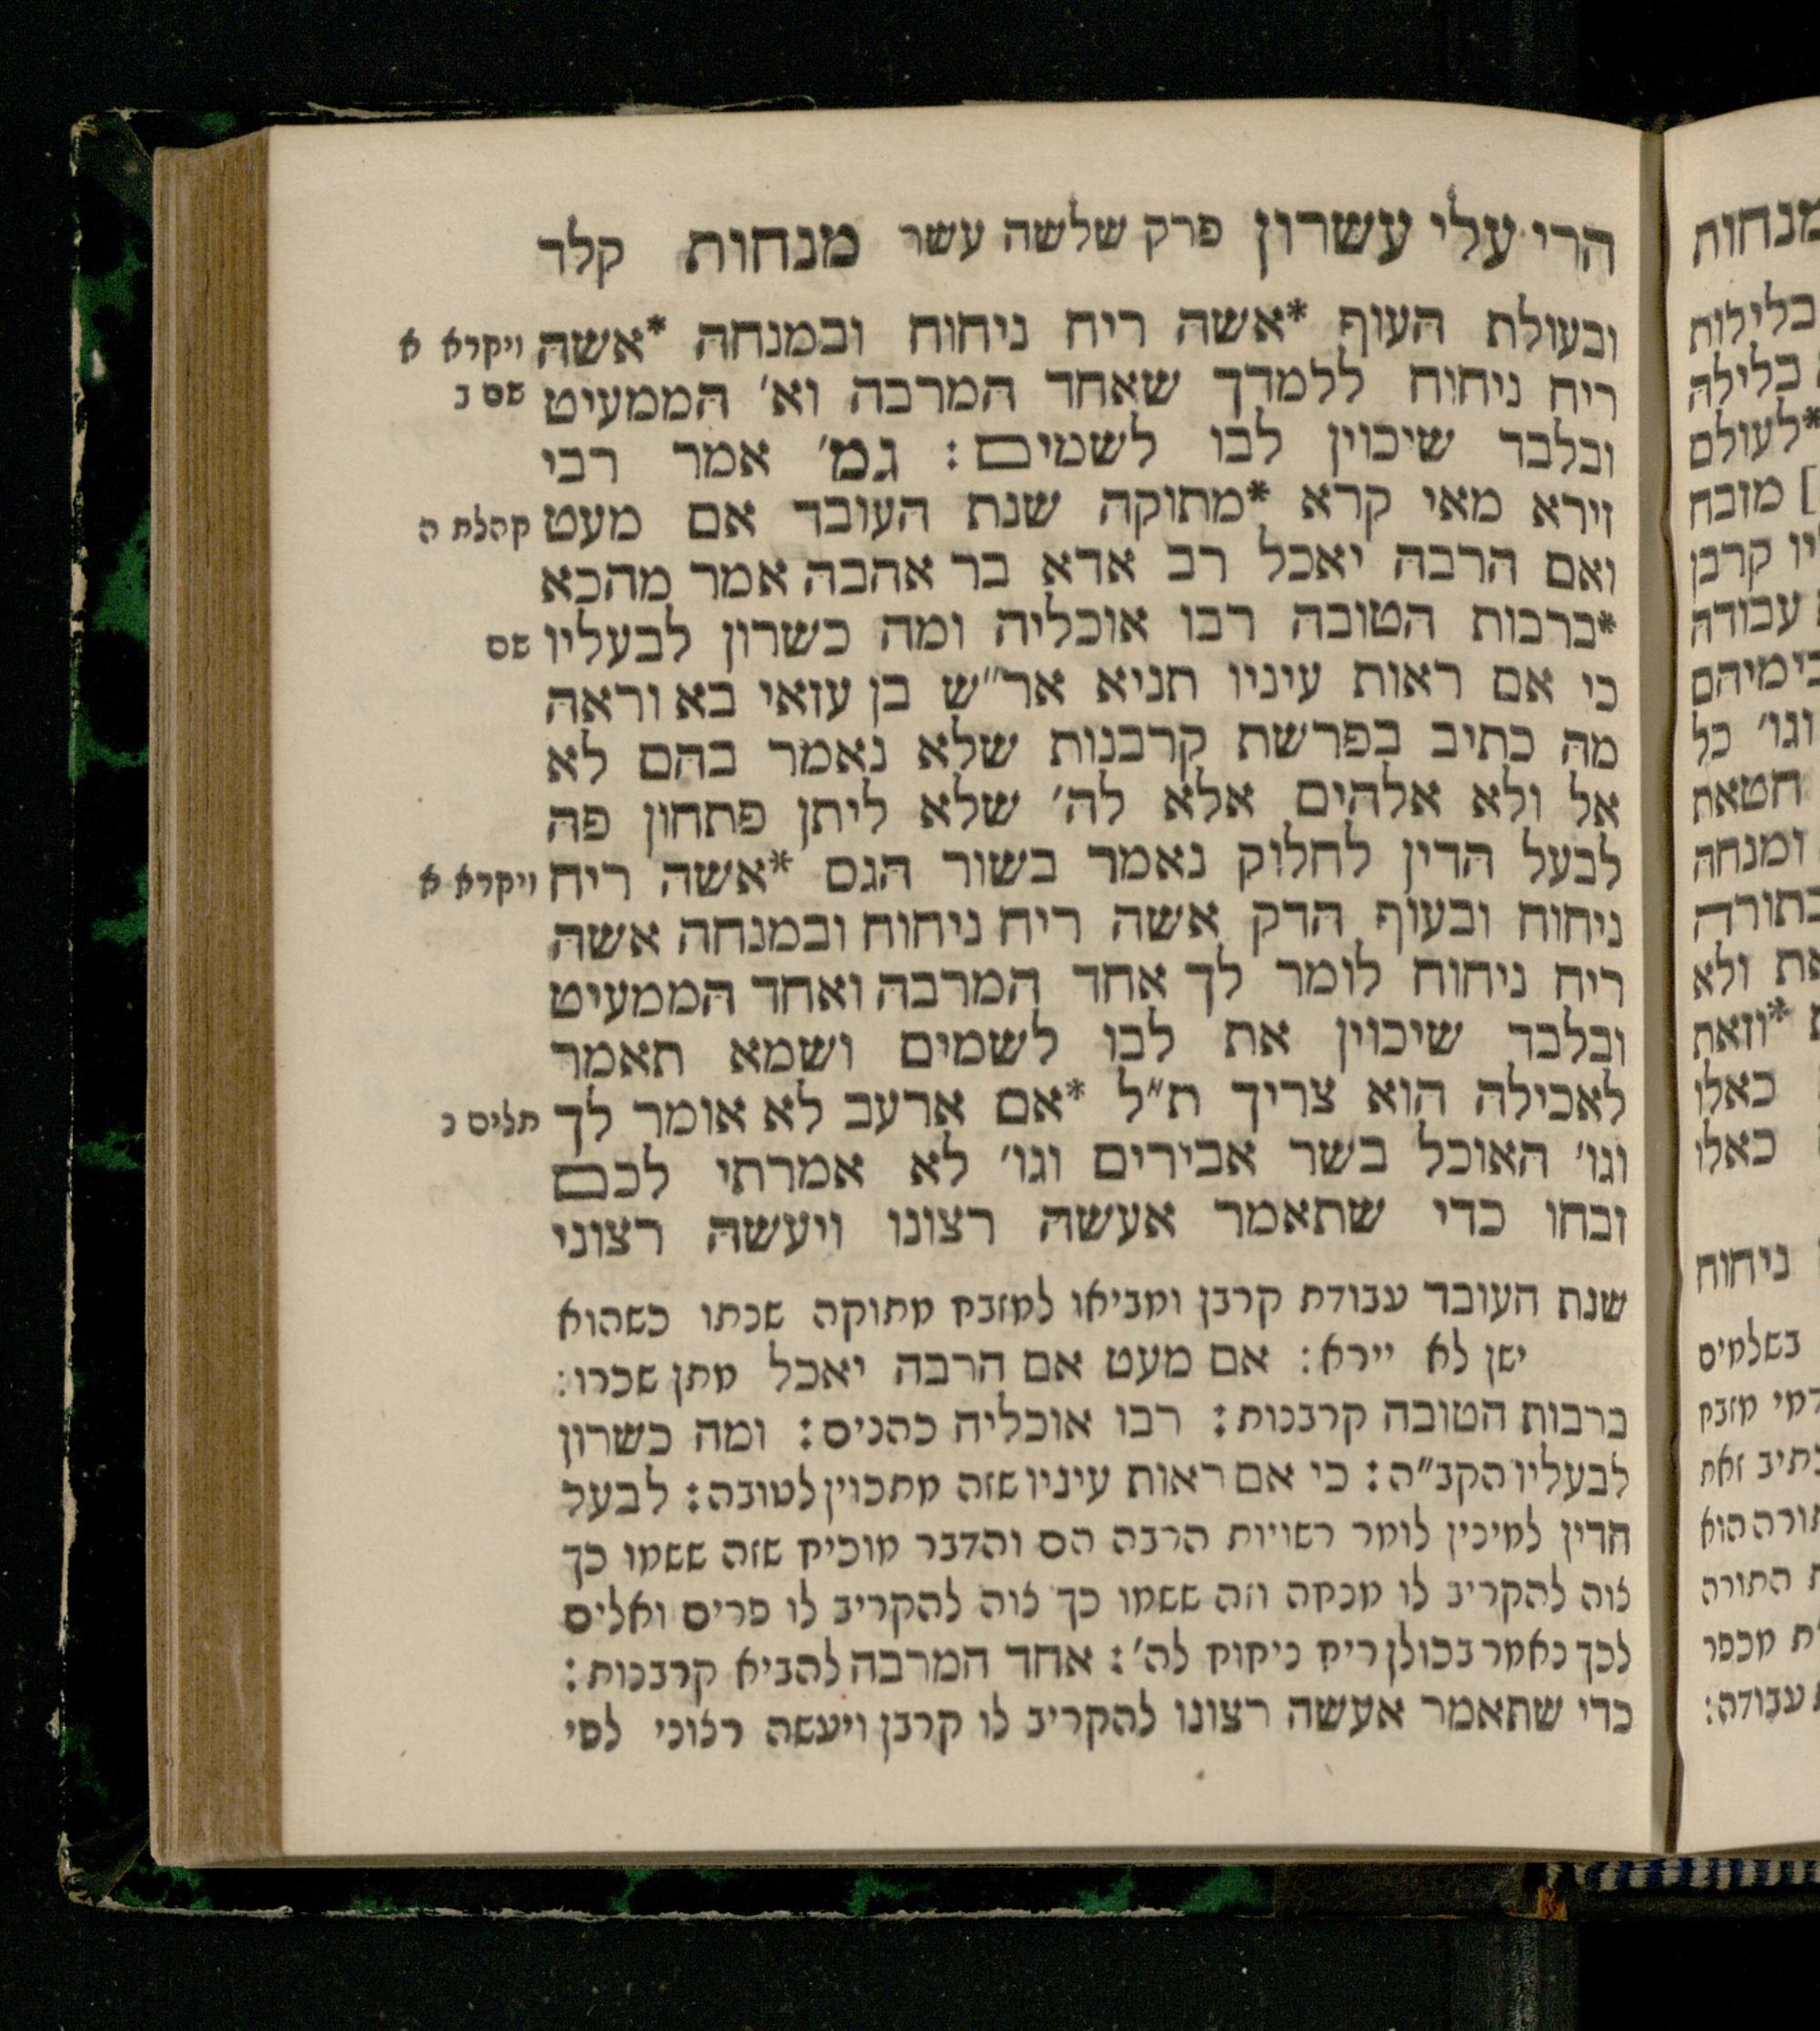 הרי עלי עשרון פרק שלשה עשר מנחות קלד
ובעולת העוף *אשה ריח ניחוח ובמנחה *אשה ויקרא א
ריח ניחוח ללמדך שאחד המרבה וא׳ הממעיט שם ב
ובלבד שיכוין לבו לשמים: גמ׳ אמר רבי
זירא מאי קרא *מתוקה שנת העובד אם מעט קהלת ה
ואם הרבה יאכל רב אדא בר אהבה אמר מהכא
*ברבות הטובה רבו אוכליה ומה כשרון לבעליו שם
כי אם ראות עיניו תניא אר״ש בן עזאי בא וראה
מה כתיב בפרשת קרבנות שלא נאמר בהם לא
אל ולא אלהים אלא לה׳ שלא ליתן פתחון פה
לבעל הדין לחלוק נאמר בשור הגס *אשה ריח ויקרא א
ניחוח ובעוף הדק אשה ריח ניחוח ובמנחה אשה
ריח ניחוח לומר לך אחד המרבה ואחד הממעיט
ובלבד שיכוין את לבו לשמים ושמא תאמר
לאכילה הוא צריך ת״ל *אם ארעב לא אומר לך תלים נ
וגו׳ האוכל בשר אבירים וגו׳ לא אמרתי לכם
זבחו כדי שתאמר אעשה רצונו ויעשה רצוני
שנת העובד עבודת קרבן ומביאו למזבח מתוקה שנתו כשהוא
ישן לא יירא: אם מעט אם הרבה יאכל מתן שכרו:
ברבות הטובה קרבנות: רבו אוכליה כהנים: ומה כשרון
לבעליו הקב״ה: כי אם ראות עיניו שזה מתכוין לטובה: לבעל
הדין למינין לומר רשויות הרבה הם והדבר מוכיח שזה ששמו כך
צוה להקריב לו מנחה וזה ששמו כך צוה להקריב לו פרים ואלים
לכך נאמר בכולן ריח ניחוח לה׳: אחד המרבה להביא קרבנות:
כדי שתאמר אעשה רצונו להקריב לו קרבן ויעשה רצוני לפי
מנחות
בלילות
בלילה
*לעולם
] מזבח
קרבן
עבודה
בימיהם
וגו׳ כל
חטאת
ומנחה
בתורה
ולא
*וזאת
כאלו
כאלו
ניחוח
בשלמים
מזבח
זאת
הוא
התורה
מכפר
עבודה: